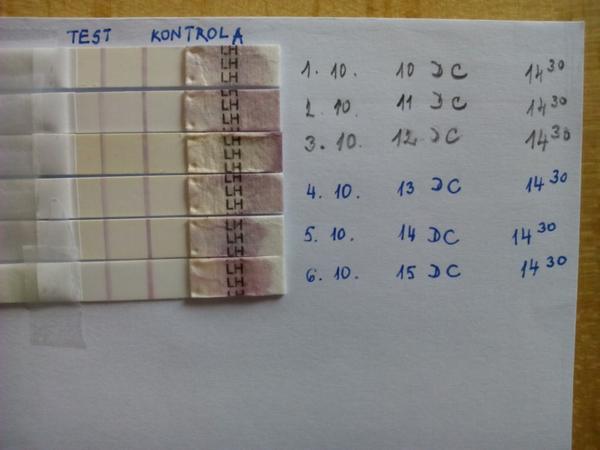 TEST KONTROLA
LH LH 1. 10. 10 DC 14 30
LH LH 2. 10. 11 DC 14 30
LH LH 3. 10. 12 DC 14 30
LH LH 4. 10. 13 DC 14 30
LH LH 5. 10. 14 DC 14 30
LH LH 6. 10. 15 DC 14 30